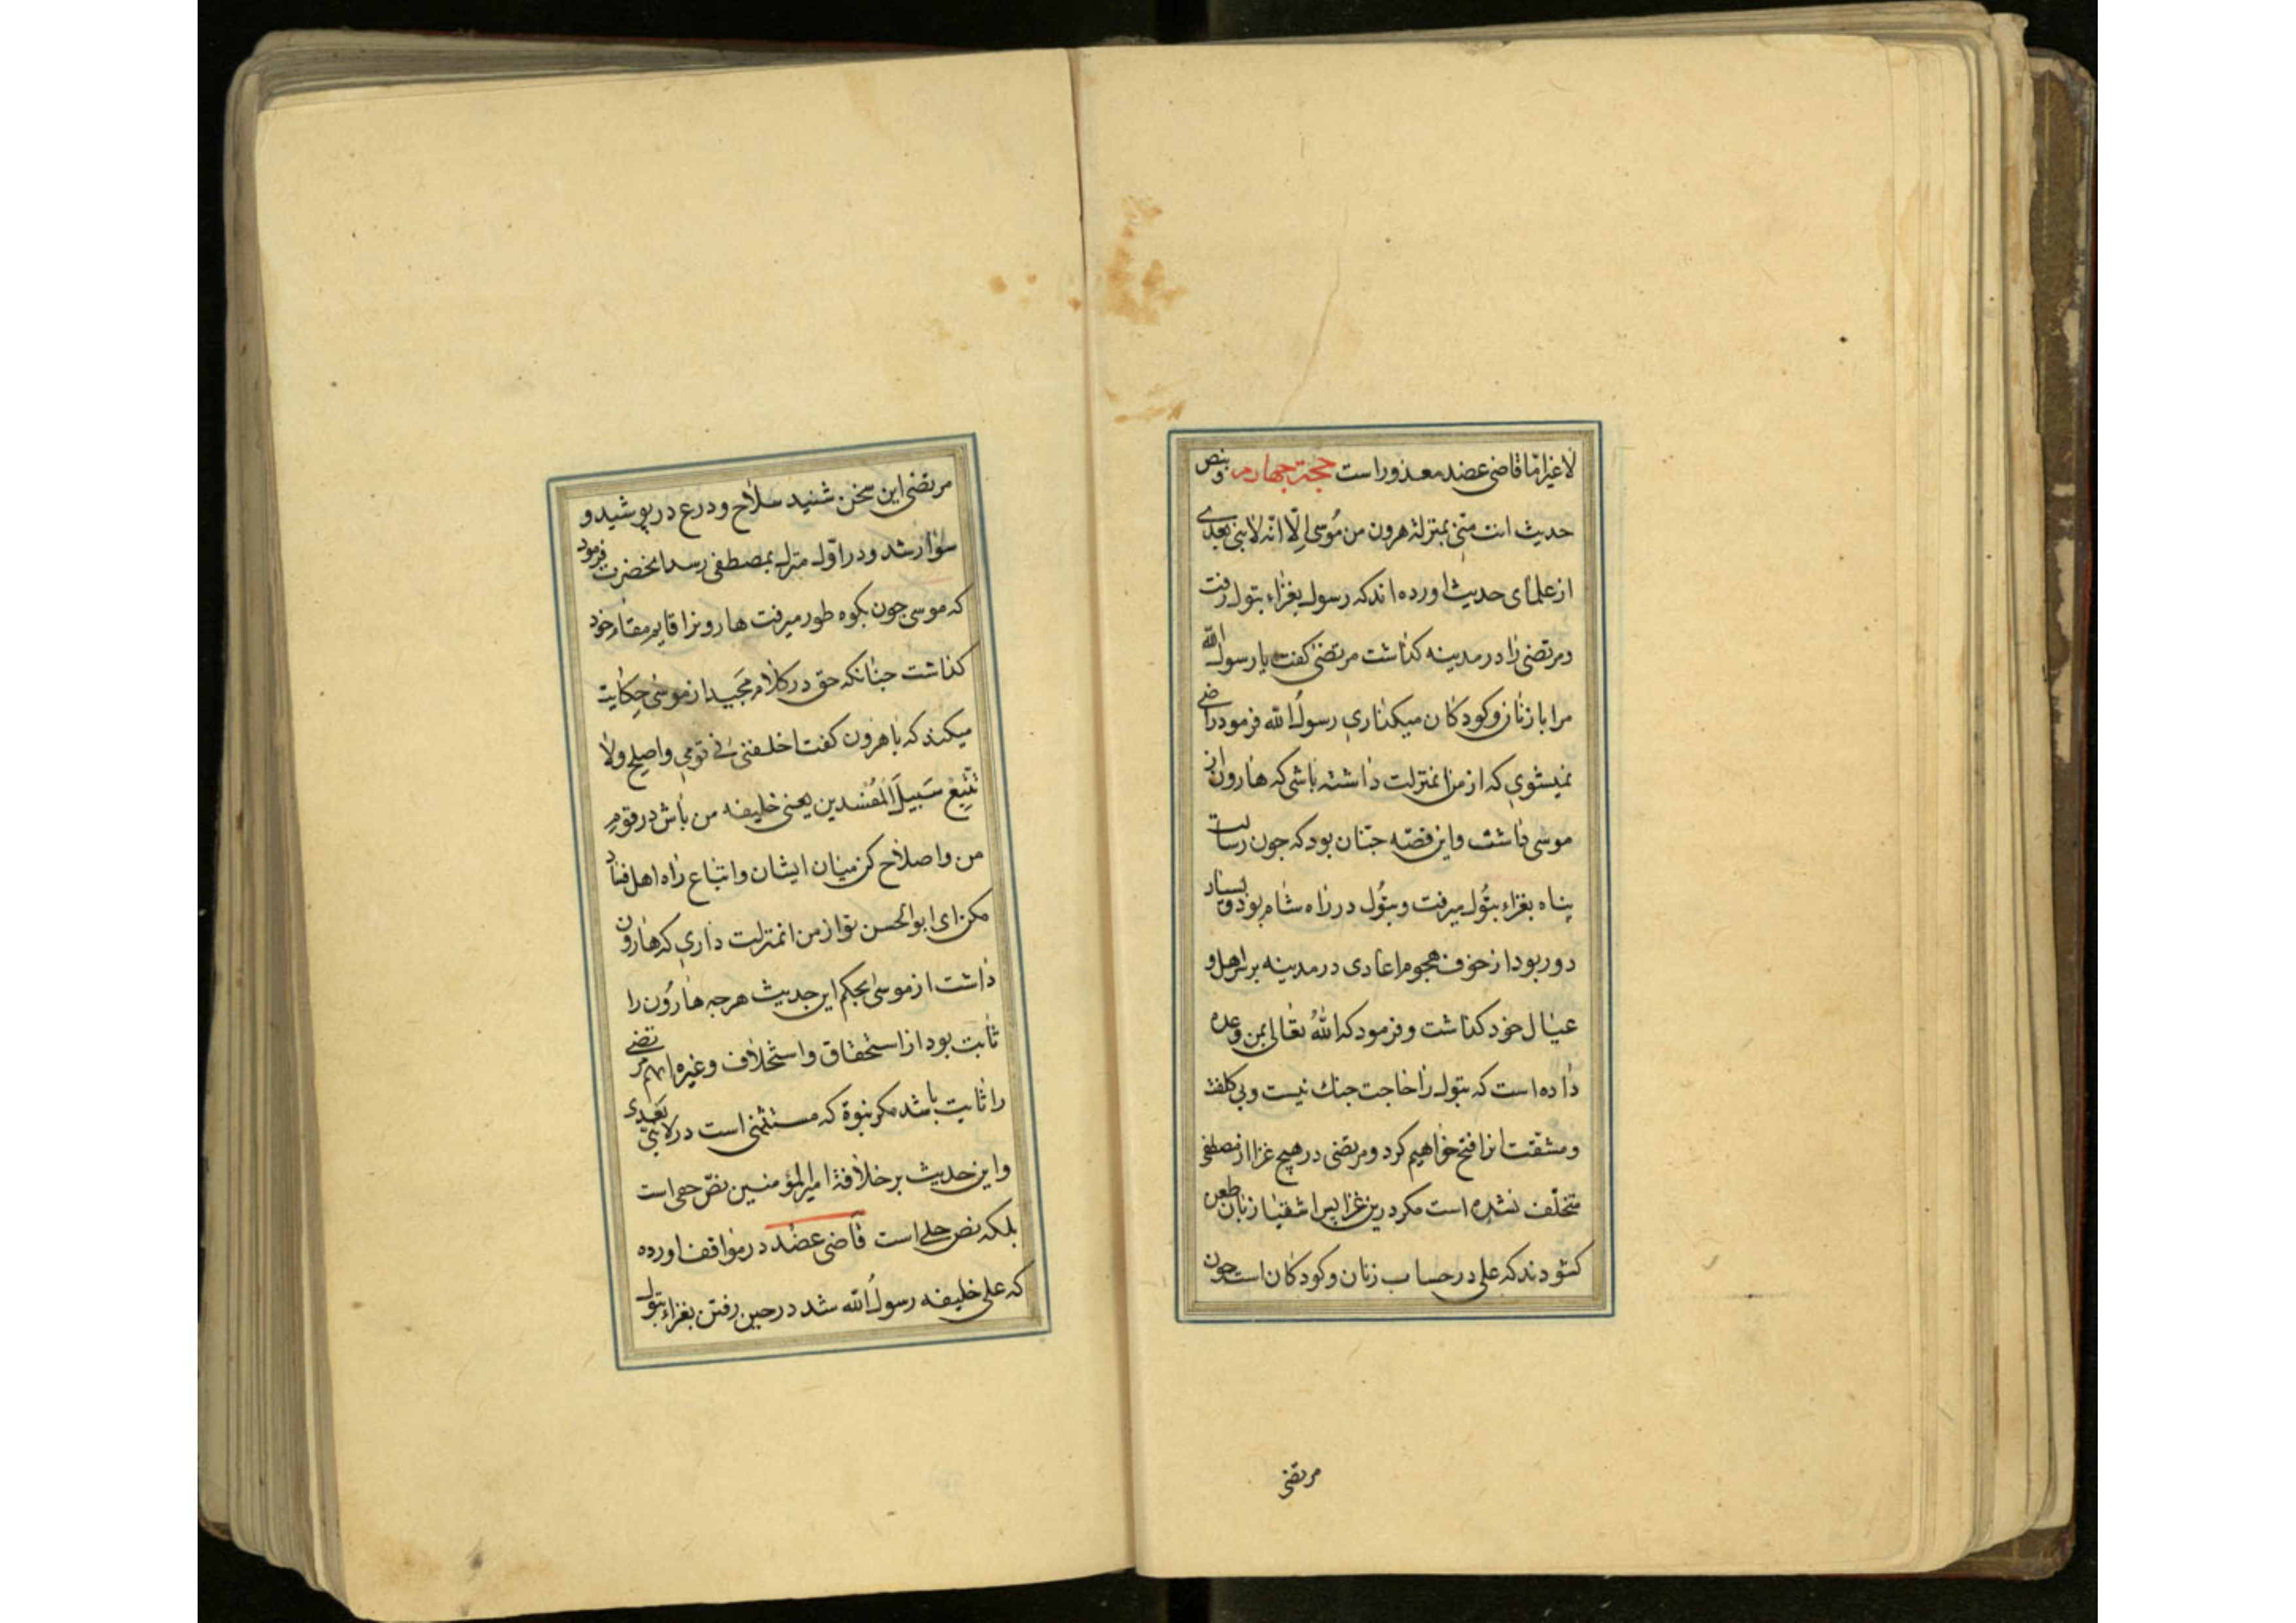 لاغیر امّا قاضی عضد معذور است حجة جهارم و بنص
حدیث انت منّی بمنزلة هرون من مُوسی اِلّا انّه لا نبی بعدی
از علمای حدیث اورده اند که رسول بغزاء بتوك رفت
و مرتضی را در مدینه کذاشت مرتضی کفت یا رسول الله
مرا با زنان و کودکان میکذاری رسولُ الله فرمود راضی
نمیشوی که از من انمنزلت داشته باشی که هارون از
موسی داشت و این قصّه جنان بود که جون رسالت
پناه بغزاء بتُوك میرفت و بتُوك در راه شام بود و بسیار
دور بود از خوف هجوم اعادی در مدینه بر سر اهل و
عیال خود کذاشت و فرمود که اللهُ تعالی بمن وعده
داده است که بتوك را حاجت جنك نیست و بی کلفت
و مشقّت انرا فتح خواهیم کرد و مرتضی در هیچ غزا از مصطفی
متخلّف نشده است مکر درین غزا پس اشقیا زبان طعن
کشودند که علی در حساب زنان و کودکان است جون
مرتضی
مرتضی این سخن شنید سلاح و درع در پوشید و
سوار شد و در اوّل منزل بمصطفی رسید انحضرت فرمود
که موسی جون بکوه طور میرفت هارونرا قایم مقام خود
کذاشت جنانکه حق در کلام مَجید از موسی حِکایت
میکند که با هرون کفت اخلفنی فی قومی واصلح ولا
تتّبِع سَبیلَ المُفسدین یعنی خلیفه من باش در قوم
من و اصلاح کن میان ایشان و اتباع راه اهل فساد
مکن ای ابوالحسن تو از من انمنزلت داری که هارون
داشت از موسی بحکم این حدیث هر جه هارُون را
ثابت بود از استحقاق و استخلاف و غیره ا بهم مرتضی
را ثابت باشد مکر نبوة که مستثنی است در لا نبیّ بَعدی
و این حدیث بر خلافة امیرالمؤمنین نصّ خفی است
بلکه نص جلی است قاضی عضد در مواقف اورده
که علی خلیفه رسولُ الله شد در حین رفتن بغزاء بتوك